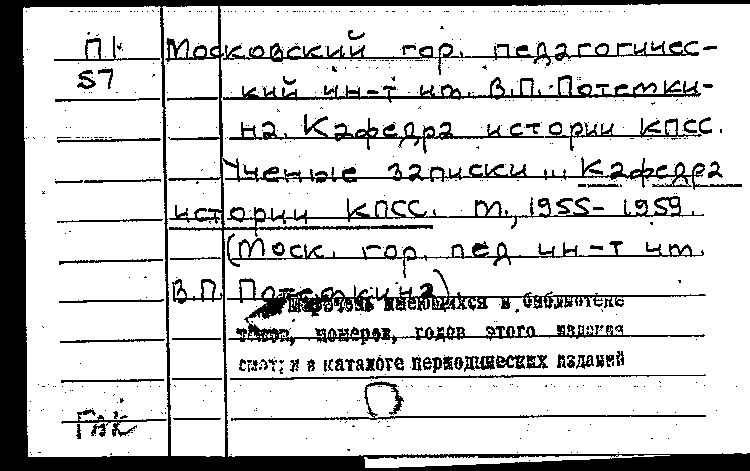 П1 Московский гор. педагогичес-
57 кий ин-т им. В.П. Потемки-
на. Кафедра истории КПСС.
Ученые записки... Кафедра
истории КПСС. М., 1955-1959.
(Моск. гор. пед ин-т им.
В.П. Потемкина).
Перечень имеющихся в библиотеке
томов, номеров, годов этого издания
смотри в каталоге периодических изданий